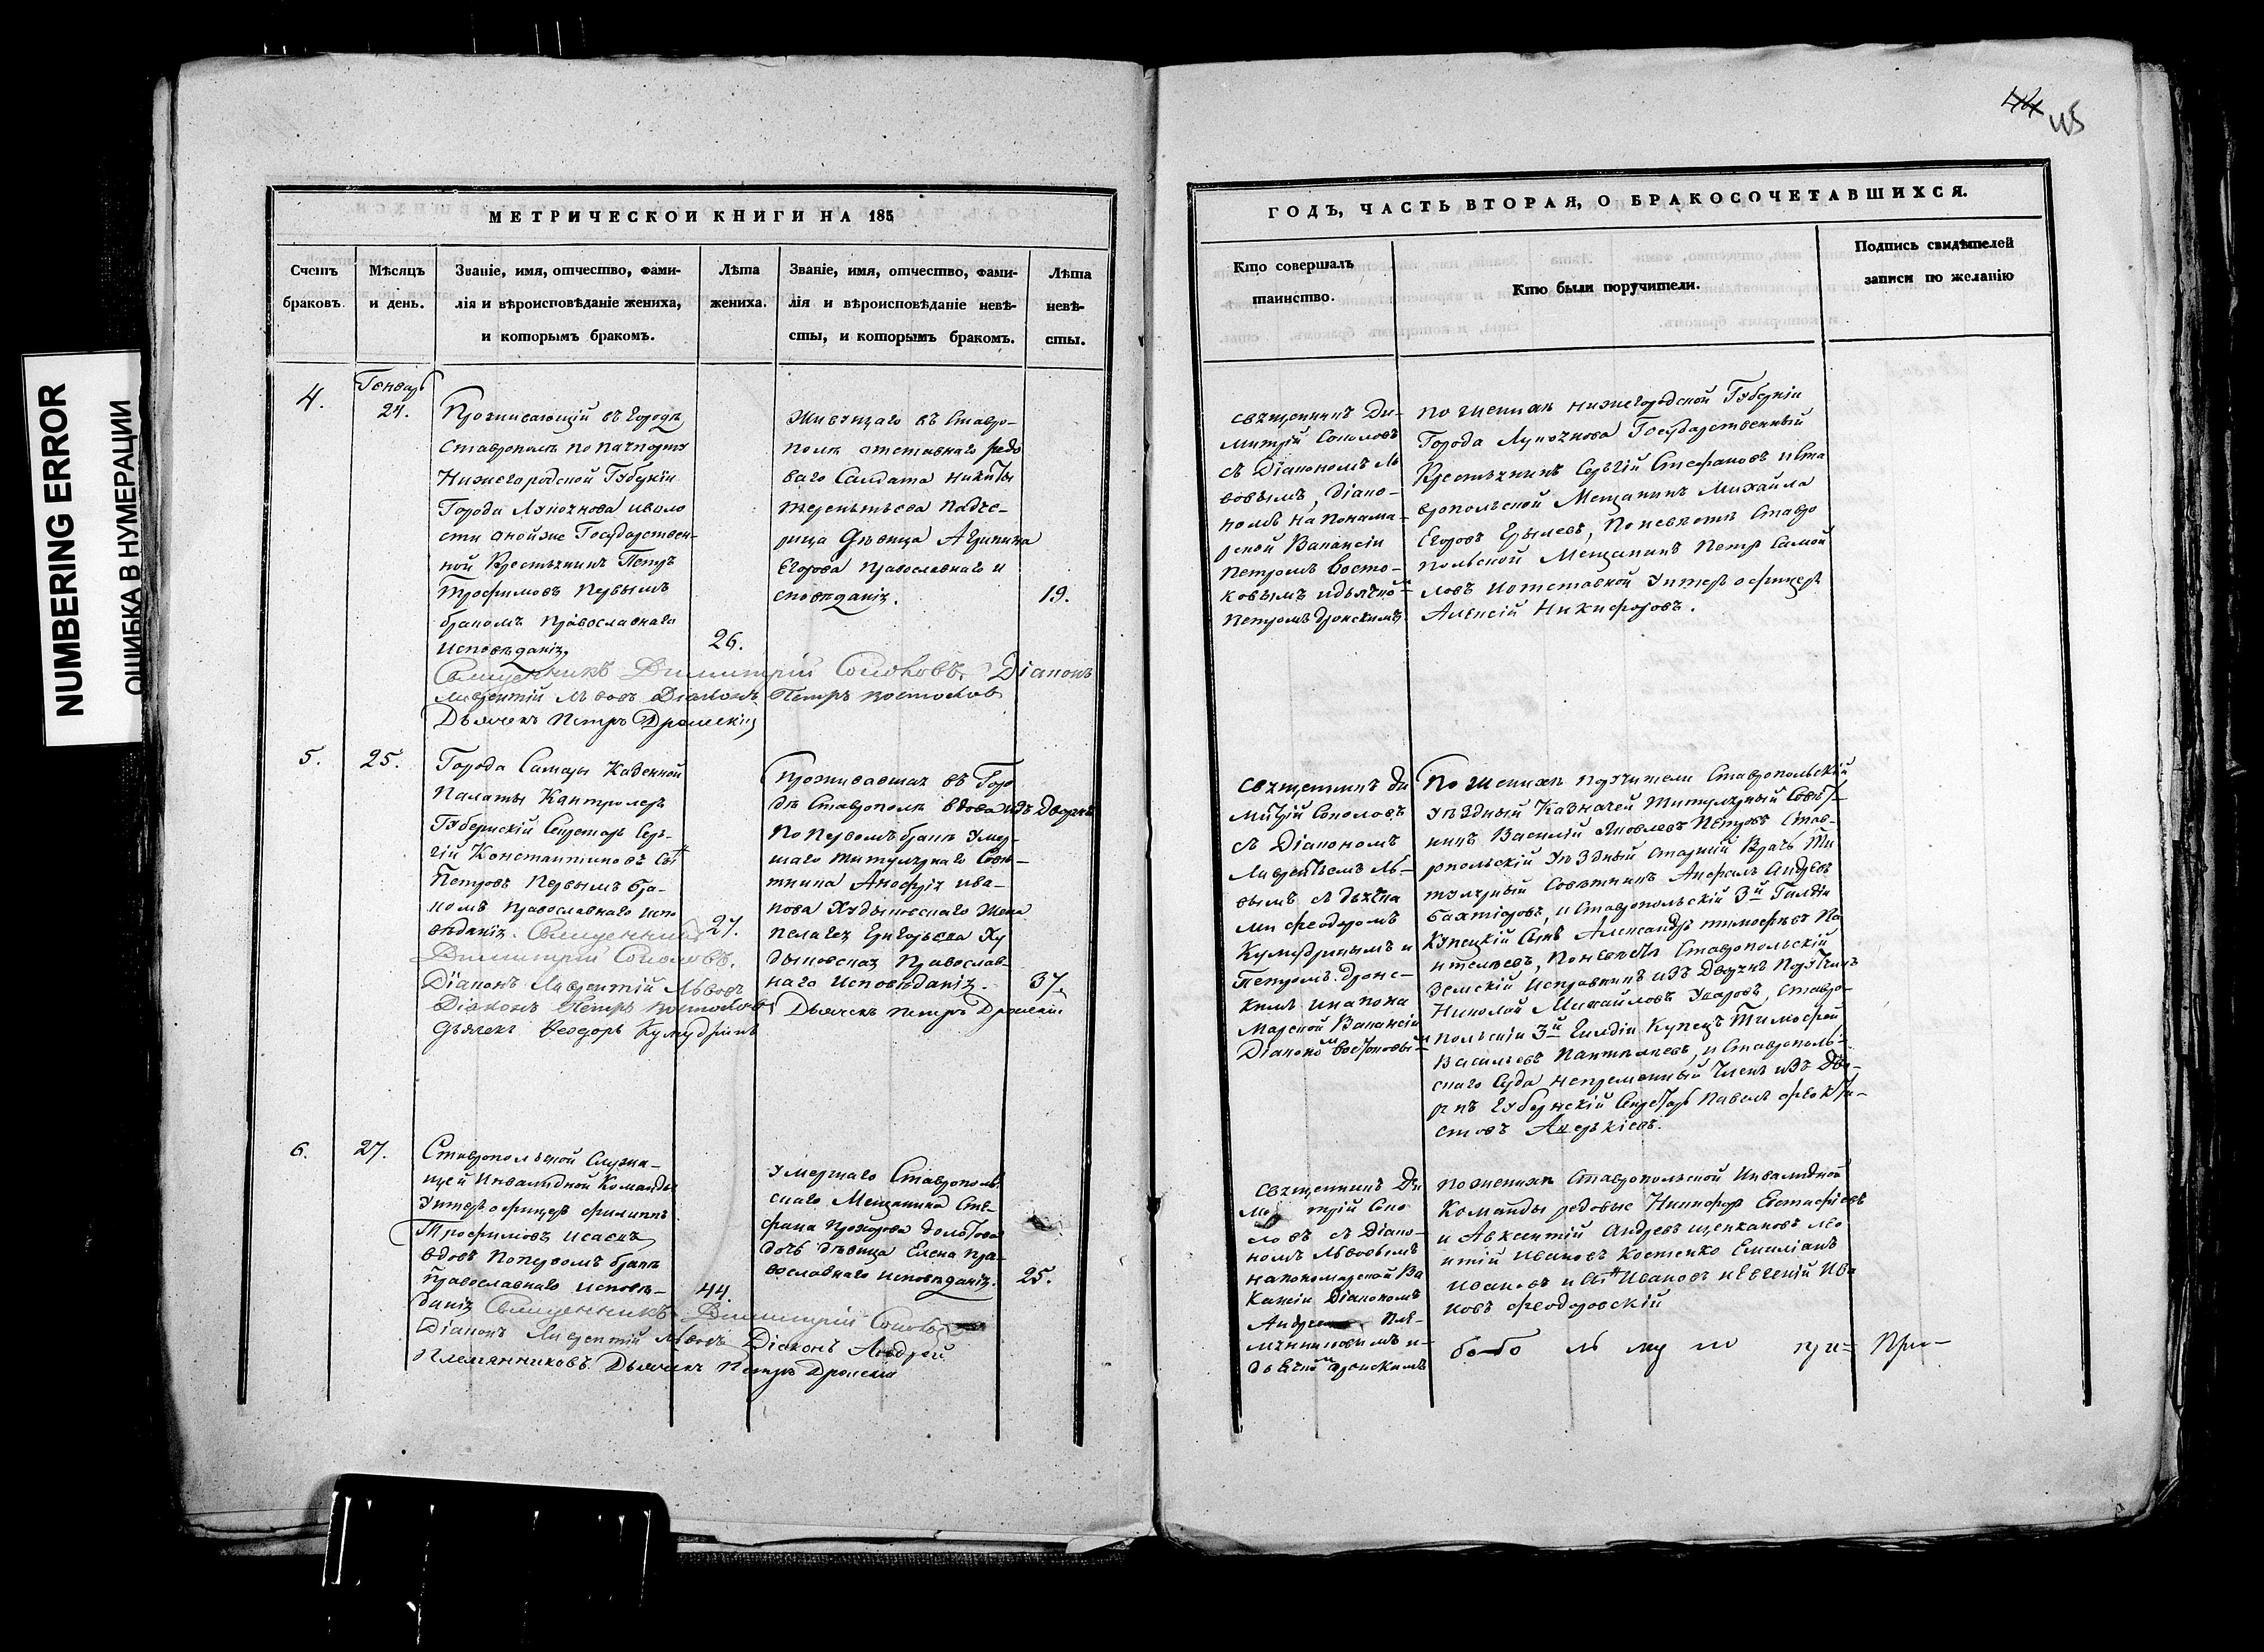 NUMBERING ERROR
ОШИБКА В НУМЕРАЦИИ
МЕТРИЧЕСКОЙ КНИГИ НА 185
Счетъ браковъ.
Мѣсяцъ и день.
Званіе, имя, отчество, фами-
лія и вѣроисповѣданіе жениха,
и которымъ бракомъ.
Лѣта
жениха.
Званіе, имя, отчество, фами-
лія и вѣроисповѣданіе невѣ-
сты, и которымъ бракомъ.
Лѣта
невѣ-
сты.
4.
Генварь
24.
Проживающій въ Городѣ
Ставрополѣ по пачпорту
Нижегородской Губерніи
Города Лукоянова иволо
сти оной же Государствен-
ной Крестьянинъ Петръ
Трофимовъ Первымъ
бракомъ Православнаго
Исповѣданія
26.
Живущаго въ Ставро-
полѣ отставнаго редо
ваго Салдата Никиты
Терентьева Падче-
рица Дѣвица Агрипина
Егорова православнаго и
сповѣданія.
19.
Священникъ Димитрій Соколовъ. Діаконъ
Лаврентій Львовъ Діаконъ Петръ Востоковъ
Дьячекъ Петръ Дронскій
5.
25.
Города Самары Казенной
Палаты Кантролеръ
Губернскій Секретарь Сер-
гій Константиновъ Сы
Петровъ Первымъ бра-
комъ православнаго испо
вѣданія. Священникъ
27.
Димитрій Соколовъ.
Діаконъ Лаврентій Львовъ
Діаконъ Петръ Востоковъ
Дьячекъ Феодоръ Кумудринъ
Проживавшая въ Горо
дѣ Ставрополѣ вдова изъ Дворянъ
По первомъ бракѣ Умер-
шаго титулярнаго Совѣ-
тника Анофрія Ива-
нова Худыковскаго Жена
Пелагея Григорьева Ху
дыковская Православ-
наго Исповѣданія.
37.
Дьячекъ Петръ Дронскій
6.
27.
Ставропольской Служа-
щей Инвалидной Команды
Унтеръ офицеръ Филиппъ
Трофимовъ Исаевъ
вдовъ по первомъ бракѣ
православнаго исповѣ-
44.
данія Священникъ Димитрій Соколовъ
Діаконъ Лаврентій Львовъ Діаконъ Андрей
Племянниковъ. Дьячекъ Петръ Дронскій
Умершаго Ставрополь
скаго Мещанина Сте-
фана Прохорова Долотова
дочь дѣвица Елена пра-
вославнаго исповѣданія.
25.
45
ГОДЪ, ЧАСТЬ ВТОРАЯ, О БРАКОСОЧЕТАВШИХСЯ.
Кто совершалъ
таинство.
Кто были поручители.
Подпись свидѣтелей
записи по желанію
священникъ Ди-
митрій Соколовъ
съ Діакономъ Ль
вовымъ, діако-
номъ на Понама-
рской Вакансіи
Петромъ Восто-
ковымъ идьячко
Петромъ Дронскимъ
По женихѣ Нижегородской Губерніи
Города Лукоянова Государственный
Крестьянинъ Сергій Стефановъ и Ста
вропольской Мещанинъ Михайла
Егоровъ, По невѣстѣ Ставро
польской Мещанинъ Петръ Самой
ловъ Иотставной Унтеръ офицеръ
Алексій Никифоровъ.
священникъ Ди
митрій Соколовъ
съ Діакономъ
Лаврентьемъ Ль-
вовымъ съ дьячка
ми Феодоромъ
Кумудринымъ и
Петромъ Дронс-
кимъ инапона
марской Вакансіи
Діакономъ Востоковы
По Женихѣ поручители Ставропольскій
Уѣздный Казначей Титулярный Совѣт
никъ Василій Яковлевъ Петровъ Став-
ропольскій Уѣздный старшій Врачь Ти
тулярный Совѣтникъ Андрѣевъ
Бахтіяровъ, и Ставропольскій 3й Гилдіи
Купецкій Сынъ Александръ тимофѣевъ Па
нтелѣевъ, По невѣстѣ Ставропольскій
Земскій Исправникъ изъ Дворянъ Поручикъ
Николай Михайловъ Уваровъ, Ставро-
польскій 3й Гилдіи Купецъ Тимофей
Васильевъ Пантелѣевъ, и Ставрополь-
скаго Суда непременный Членъ изъ Дво-
рянъ Губернскій Секретарь Павелъ Феокти-
стовъ
священникъ Ди
митрій Соко
ловъ съ Діако-
номъ Львовымъ
на пономарской Ва
кансіи Діакономъ
Андреемъ Пле-
мянниковымъ и-
дьячкомъ Дронскимъ
по женихѣ Ставропольской Инвалидной
Команды редовые Никифоръ Евстафіевъ
и Авксентій Андреевъ Щепкановъ Лео
нтій Ивановъ Костенко Емиліанъ
Ивановъ и Ивановъ и Евгеній Ива
новъ Феодоровскій